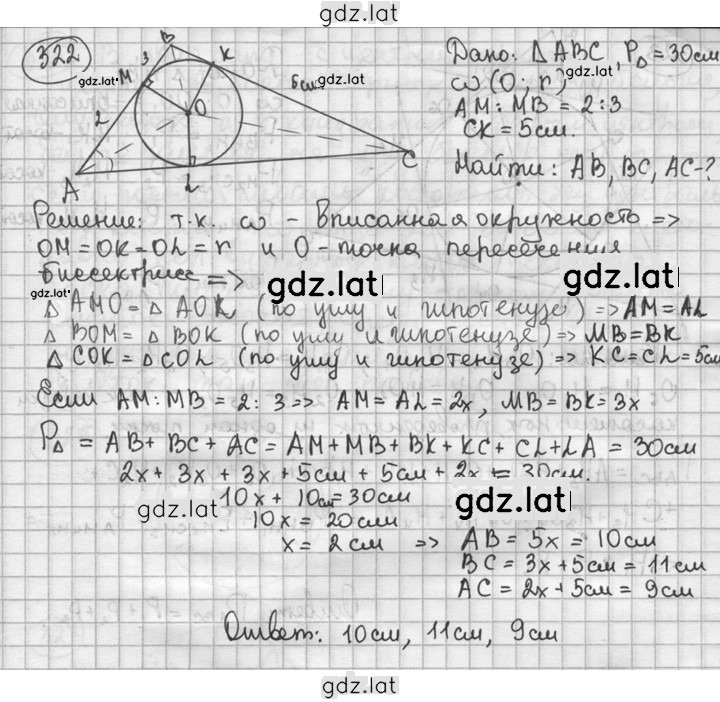 gdz.lat
322
Дано: Δ ABC, P△ = 30см
ω (O; r)
AM : MB = 2:3
CK = 5см.
Найти: AB, BC, AC-?
gdz.lat
gdz.lat
B
3
K
M
5см
2
O
A
L
C
Решение: т.к. ω - вписанная окружность =>
OM = OK = OL = r и O - точка пересечения
биссектрис =>
gdz.lat
gdz.lat
Δ AMO = Δ AOK (по углу и гипотенузе) => AM = AL
Δ BOM = Δ BOK (по углу и гипотенузе) => MB = BK
Δ COK = Δ COL (по углу и гипотенузе) => KC = CL = 5см
Если AM : MB = 2 : 3 => AM = AL = 2x, MB = BK = 3x
P△ = AB + BC + AC = AM + MB + BK + KC + CL + LA = 30см
2x + 3x + 3x + 5см + 5см + 2x = 30см.
gdz.lat
gdz.lat
10x + 10см = 30см
10x = 20см
x = 2см => AB = 5x = 10см
BC = 3x + 5см = 11см
AC = 2x + 5см = 9см
Ответ: 10см, 11см, 9см
gdz.lat